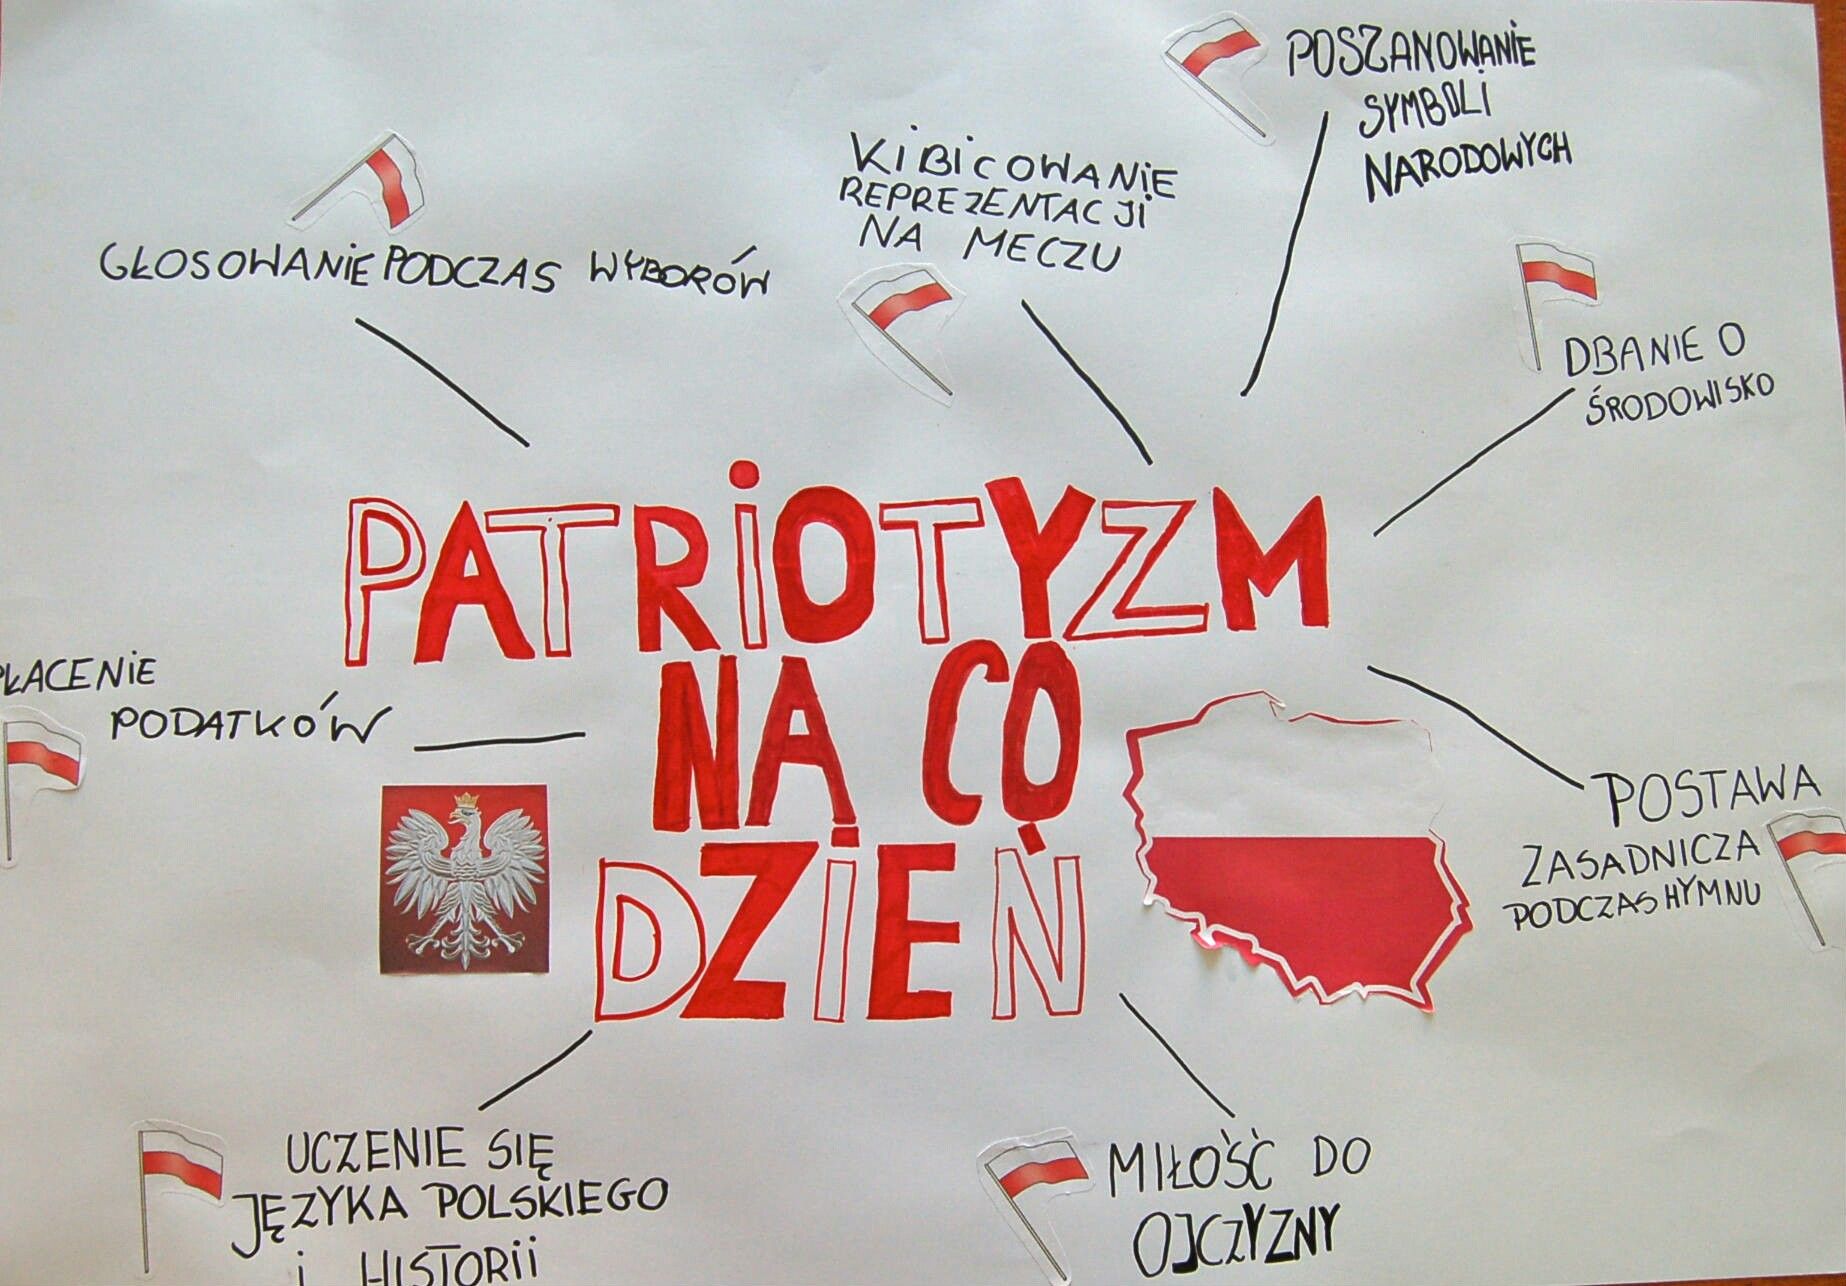 POSZANOWANIE
SYMBOLI
NARODOWYCH
KIBICOWANIE
REPREZENTACJI
NA MECZU
GŁOSOWANIE PODCZAS WYBORÓW
DBANIE O
ŚRODOWISKO
PATRIOTYZM
NA CO
DZIEŃ
PŁACENIE
PODATKÓW
POSTAWA
ZASADNICZA
PODCZAS HYMNU
UCZENIE SIĘ
JĘZYKA POLSKIEGO
i HISTORII
MIŁOŚĆ DO
OJCZYZNY